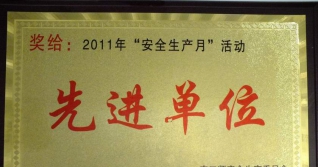 奖给：2011年“安全生产月”活动
先进单位